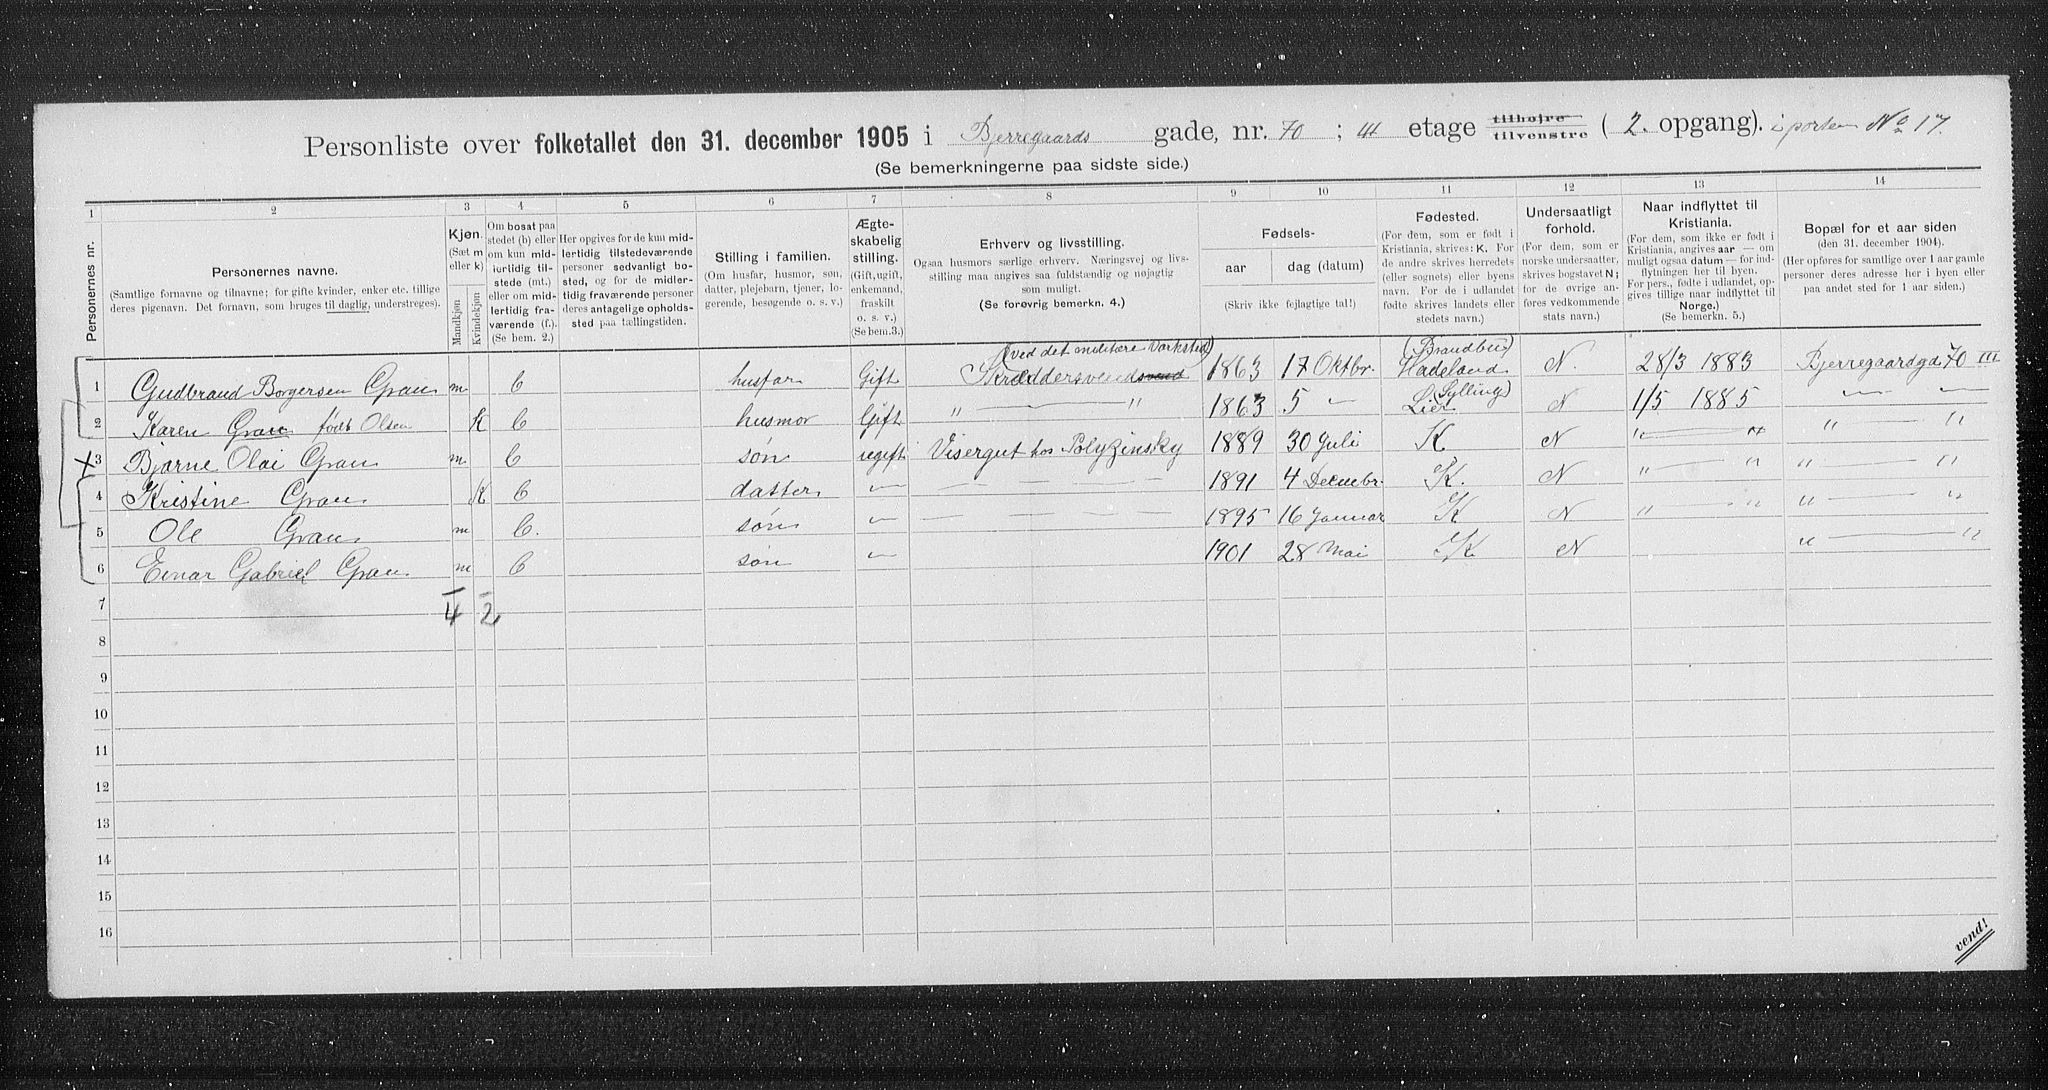 Personliste over folketallet den 31. december 1905 i Bjerregaards gade, nr. 70 ; III etage tilhøjre tilvenstre ( 2. opgang). i porten No 17.
(Se bemerkningerne paa sidste side.)
1 2 3 4 5 6 7 8 9 10 11 12 13 14
Personernes nr.
Personernes navne.
(Samtlige fornavne og tilnavne; for gifte kvinder, enker etc. tillige
deres pigenavn. Det fornavn, som bruges til daglig, understreges).
Kjøn.
(Sæt m
eller k)
Mandkjøn
Kvindekjøn
Om bosat paa
stedet (b) eller
om kun mid-
lertidig til-
stede (mt.)
eller om mid-
lertidig fra-
værende (f.).
(Se bem. 2.)
Her opgives for de kun mid-
lertidig tilstedeværende
personer sedvanligt bo-
sted, og for de midler-
tidig fraværende personer
deres antagelige opholds-
sted paa tællingstiden.
Stilling i familien.
(Om husfar, husmor, søn,
datter, plejebarn, tjener, lo-
gerende, besøgende o. s. v.)
Ægte-
skabelig
stilling.
(Gift, ugift,
enkemand,
fraskilt
o. s. v.)
(Se bem.3.)
Erhverv og livsstilling.
Ogsaa husmors særlige erhverv. Næringsvej og livs-
stilling maa angives saa fuldstændig og nøjagtig
som muligt.
(Se forøvrig bemerkn. 4.)
Fødsels-
aar dag (datum)
(Skriv ikke fejlagtige tal!)
Fødested.
(For dem, som er født i
Kristiania, skrives: K. For
de andre skrives herredets
(eller sognets) eller byens
navn. For de i udlandet
fødte skrives landets eller
stedets navn.)
Undersaatligt
forhold.
(For dem, som er
norske undersaatter,
skrives bogstavet N;
for de øvrige an-
føres vedkommende
stats navn.)
Naar indflyttet til
Kristiania.
(For dem, som ikke er født i
Kristiania, angives aar — om
muligt ogsaa datum — for ind-
flytningen her til byen.
For pers., fødte i udlandet, op-
gives tillige naar indflyttet til
Norge.)
(Se bemerkn. 5.)
Bopæl for et aar siden
(den 31. december 1904).
(Her opføres for samtlige over 1 aar gamle
personer deres adresse her i byen eller
paa andet sted for 1 aar siden.)
(ved det militære Værksted) (Brandbu)
1 Gudbrand Borgersen Gran m b husfar Gift Skræddersvend 1863 17 Oktbr. Hadeland N. 28/3 1883 Bjerregaardgd 70 III
(Sylling)
2 Karen Gran født Olsen K b husmor Gift " — " 1863 5 — Lier N 1/5 1885 — —
3 Bjarne Olai Gran m b søn ugift Visergut hos Polyzinsky 1889 30 Juli K N " — " " — "
4 Kristine Gran K b datter — — 1891 4 Decmbr. K. N " — " " — "
5 Ole Gran m b. søn — — 1895 16 Januar K N " — " " — "
6 Einar Gabriel Gran m b søn — 1901 28 Mai K N " — "
7 4 2
8
9
10
11
12
13
14
15
16
vend!